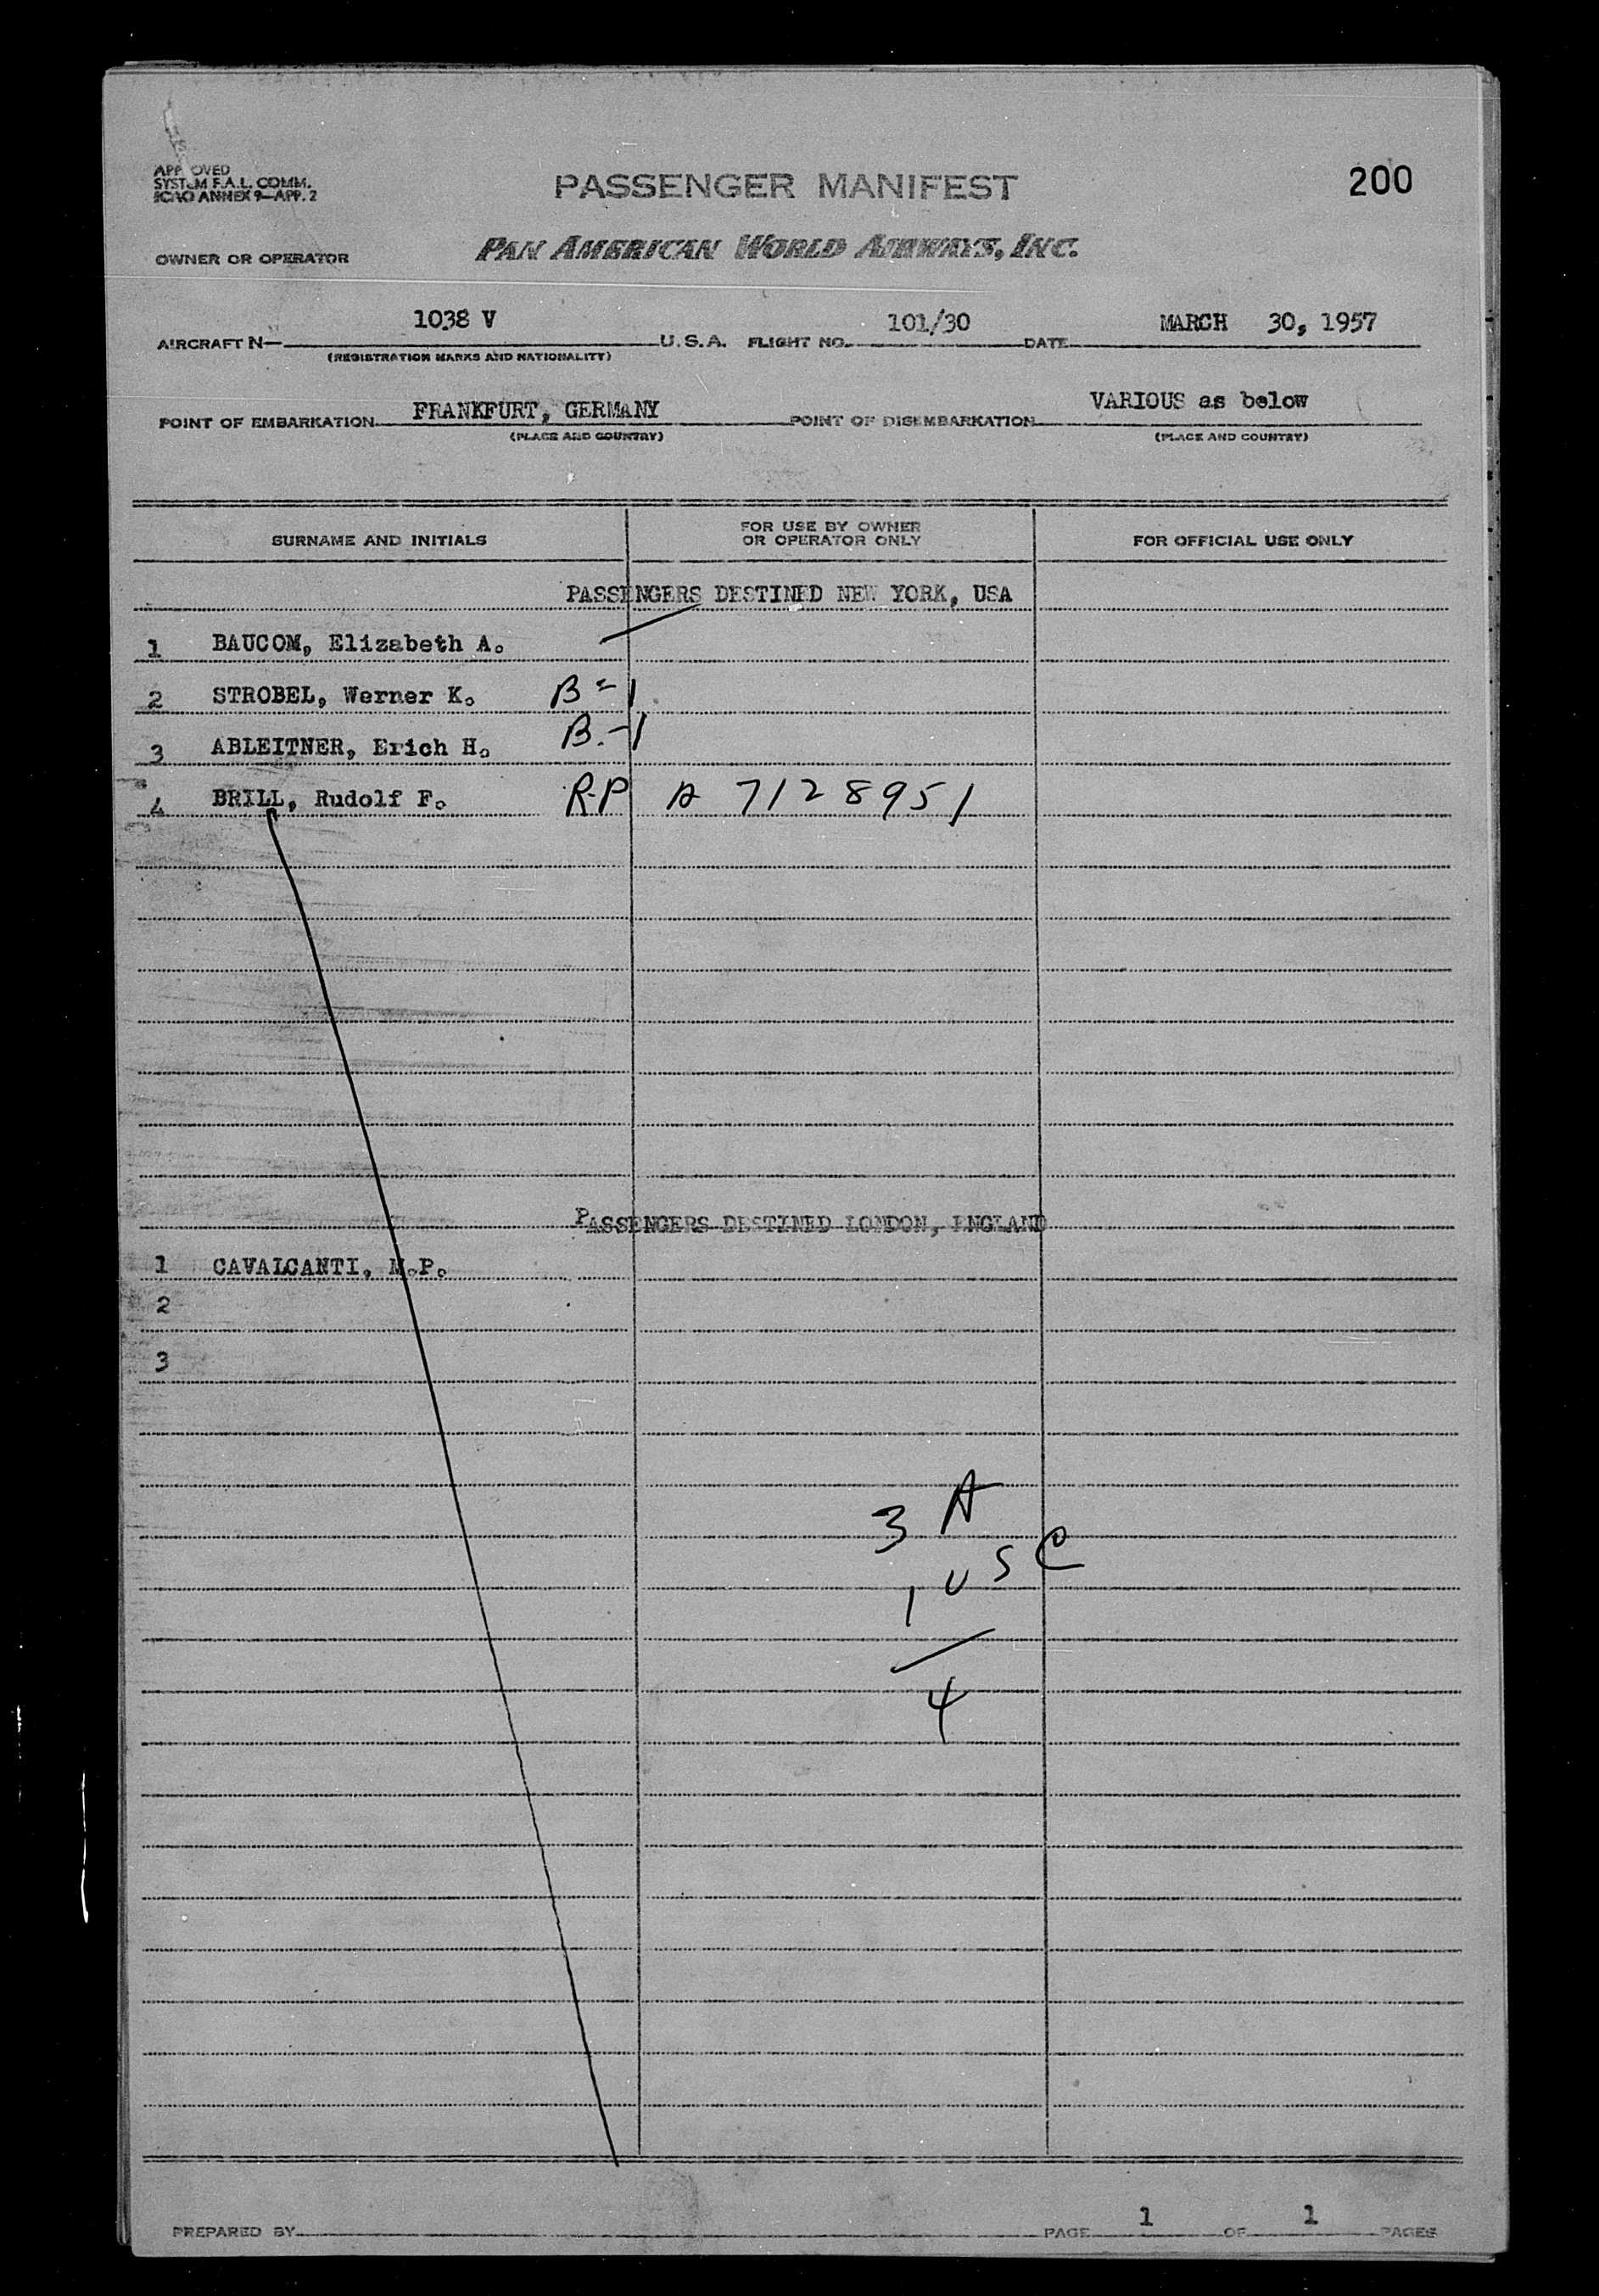 APPROVED
SYSTEM F.A.L. COMM.
ICAO ANNEX 9—APP. 2
PASSENGER MANIFEST
200
OWNER OR OPERATOR
PAN AMERICAN WORLD AIRWAYS, INC.
AIRCRAFT N— 1038 V U.S.A. FLIGHT NO. 101/30 DATE MARCH 30, 1957
(REGISTRATION MARKS AND NATIONALITY)
POINT OF EMBARKATION FRANKFURT, GERMANY POINT OF DISEMBARKATION VARIOUS as below
(PLACE AND COUNTRY) (PLACE AND COUNTRY)
SURNAME AND INITIALS FOR USE BY OWNER OR OPERATOR ONLY FOR OFFICIAL USE ONLY
PASSENGERS DESTINED NEW YORK, USA
1 BAUCOM, Elizabeth A.
2 STROBEL, Werner K. B-1
3 ABLEITNER, Erich H. B.-1
4 BRILL, Rudolf F. R-P A 7128951
PASSENGERS DESTINED LONDON, ENGLAND
1 CAVALCANTI, M.P.
2
3
3 A
1 USC
4
PREPARED BY PAGE 1 OF 1 PAGES